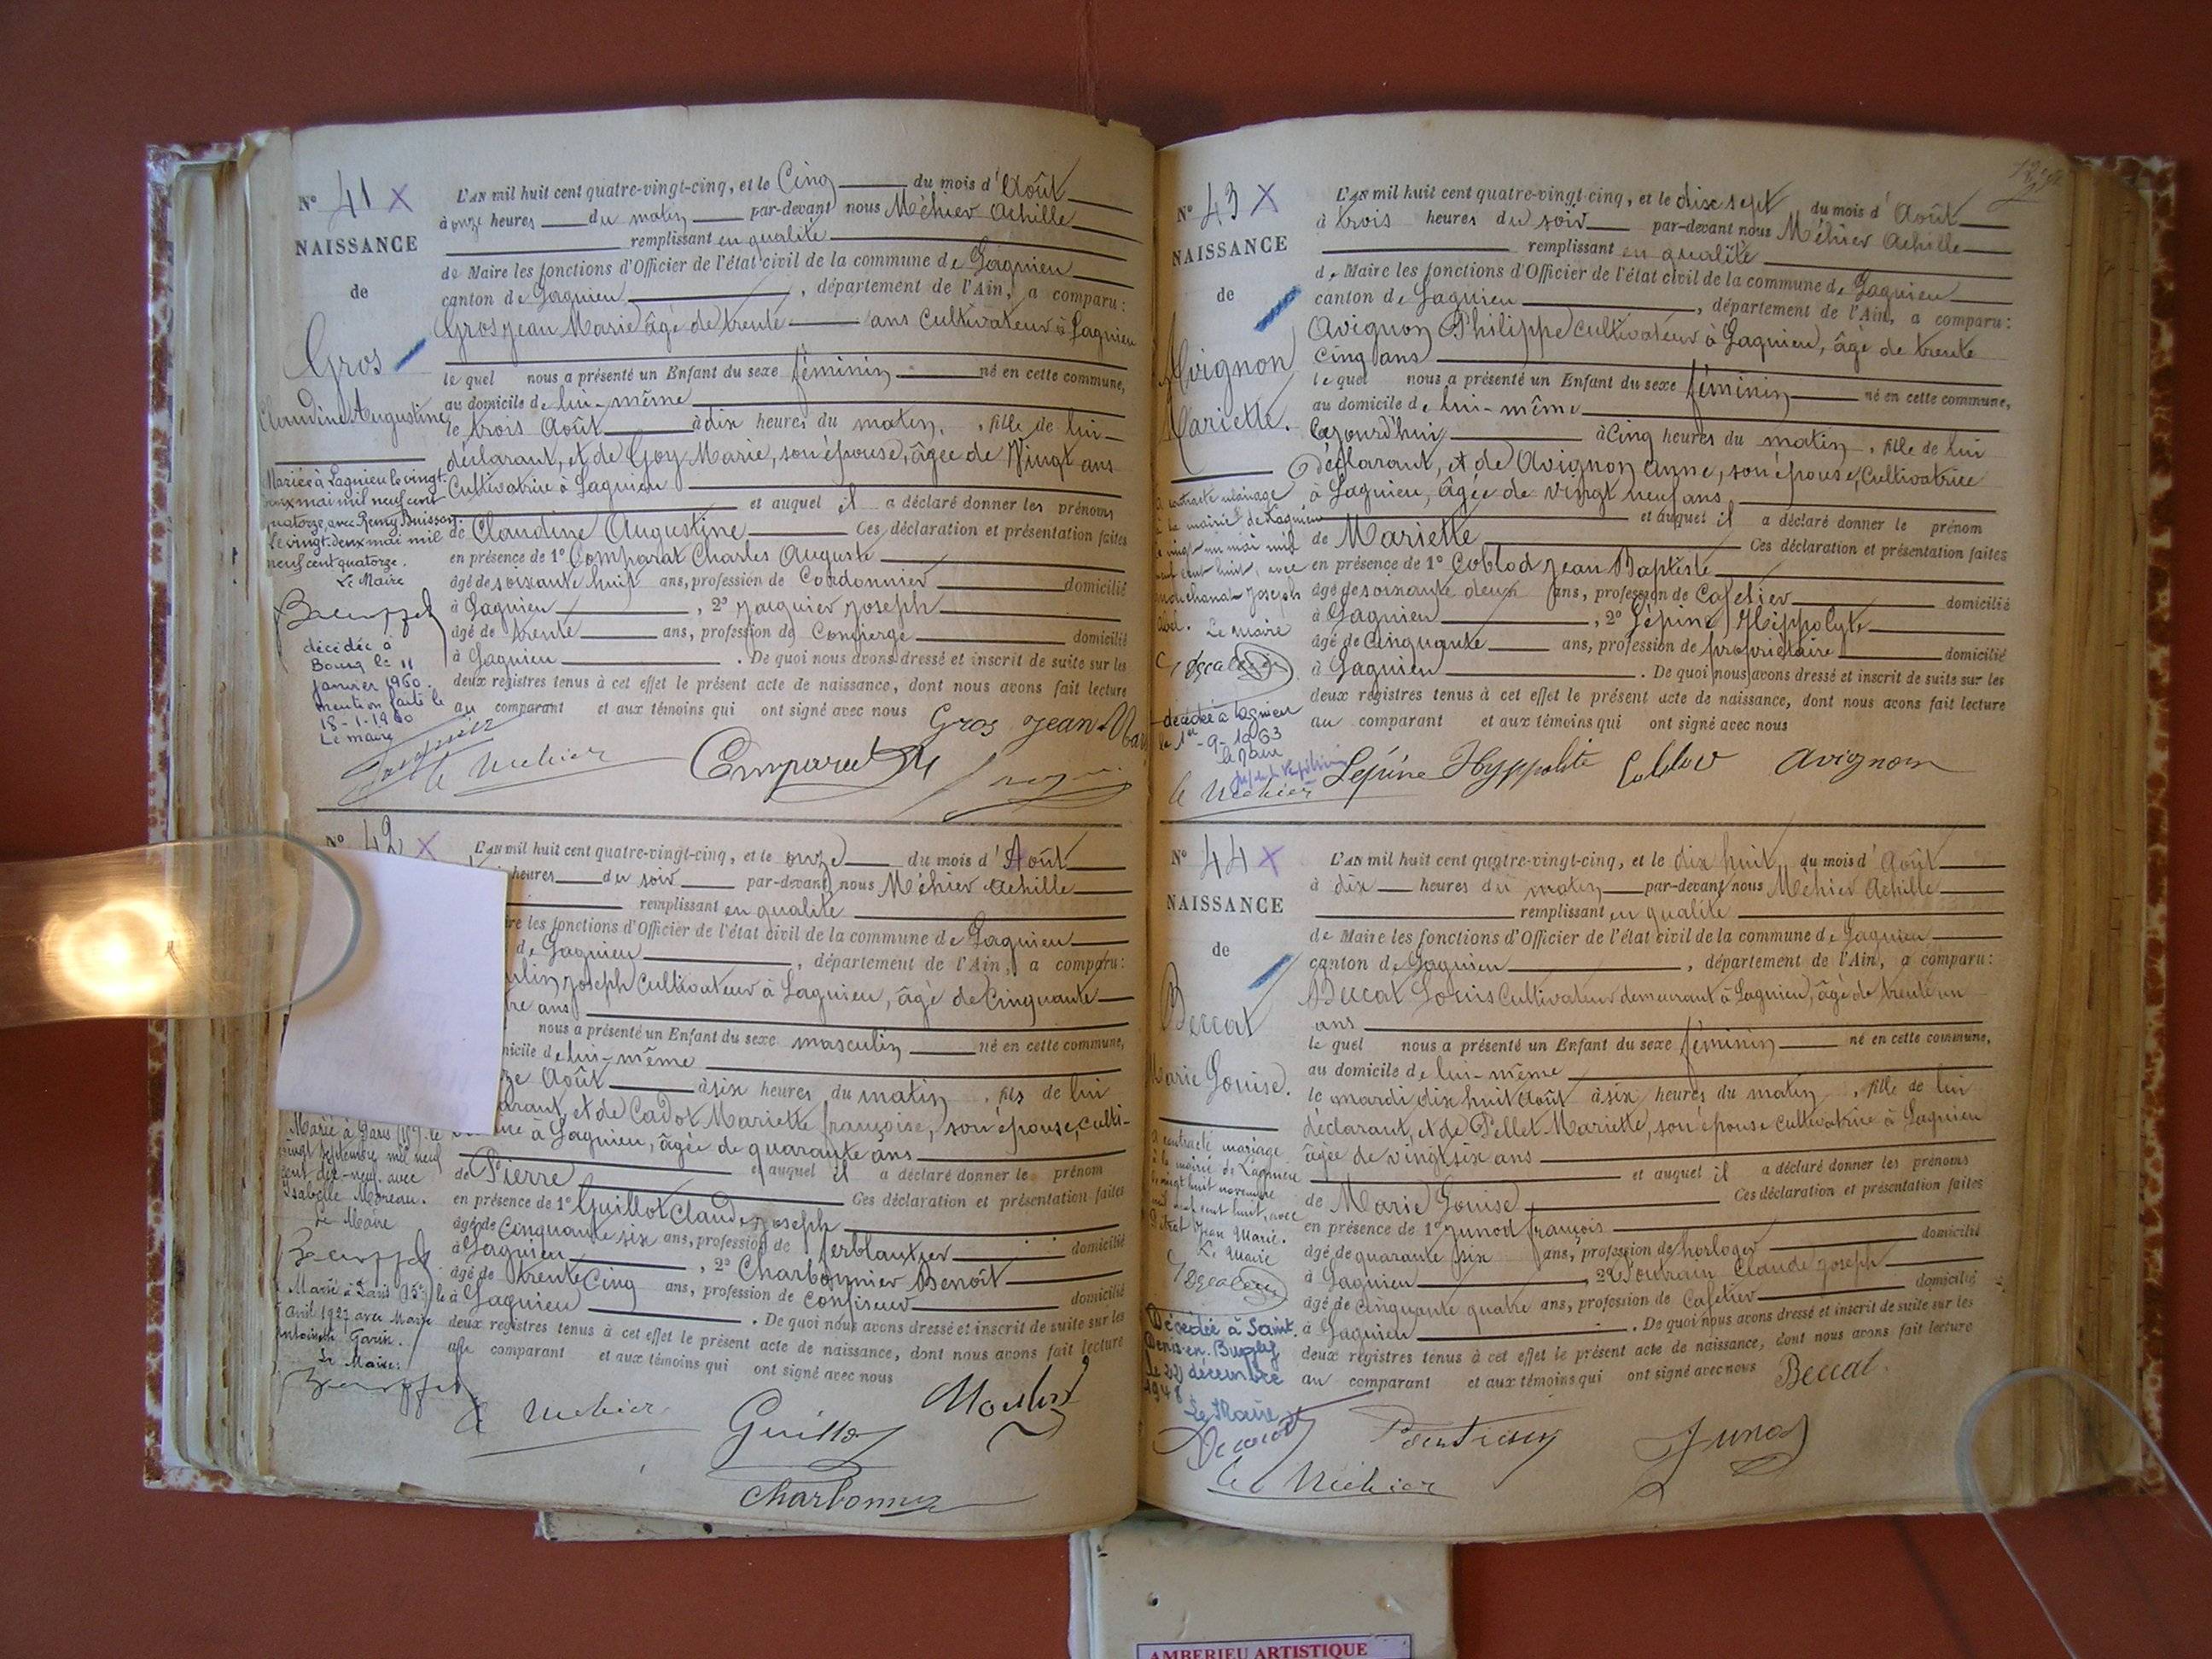 N° 41 X
NAISSANCE
de
Gros
Claudine Augustine
Mariée à Lagnieu le vingt-
deux mai mil neuf cent
quatorze, avec Remy Buisson
Le vingt-deux mai mil
neuf cent quatorze.
Le Maire
décédée à
Bourg le 11
janvier 1960
mention faite le
18-1-1960
Le maire
L'AN mil huit cent quatre-vingt-cinq, et le Cinq du mois d'Août
à onze heures du matin par-devant nous Méhier Achille
remplissant en qualité
de Maire les fonctions d'Officier de l'état civil de la commune de Lagnieu
canton de Lagnieu, département de l'Ain, a comparu:
Gros Jean Marie âgé de trente ans Cultivateur à Lagnieu
le quel nous a présenté un Enfant du sexe féminin né en cette commune,
au domicile de lui-même
le trois Août à dix heures du matin, fille de lui
déclarant, et de Goy Marie, son épouse, âgée de Vingt ans
Cultivatrice à Lagnieu
et auquel il a déclaré donner les prénoms
de Claudine Augustine Ces déclaration et présentation faites
en présence de 1° Comparat Charles Auguste
âgé de soixante huit ans, profession de Cordonnier domicilié
à Lagnieu, 2° Jacquier Joseph
âgé de trente ans, profession de Concierge domicilié
à Lagnieu. De quoi nous avons dressé et inscrit de suite sur les
deux registres tenus à cet effet le présent acte de naissance, dont nous avons fait lecture
au comparant et aux témoins qui ont signé avec nous Gros Jean Mar
Le Méhier Comparat
N° 42 X
Mariée à Paris le
vingt septembre mil neuf
cent dix-neuf avec
Isabelle Moreau.
Le Maire
Marié à Paris 15e le
avril 1927 avec Marie
Antoinette Garin.
Le Maire:
L'AN mil huit cent quatre-vingt-cinq, et le onze du mois d'Août
heures du soir par-devant nous Méhier Achille
remplissant en qualité
re les fonctions d'Officier de l'état civil de la commune de Lagnieu
de Lagnieu, département de l'Ain, a comparu:
ulin Joseph Cultivateur à Lagnieu, âgé de Cinquante
re ans
nous a présenté un Enfant du sexe masculin né en cette commune,
micile de lui-même
ze Août à six heures du matin, fils de lui
arant, et de Cadot Mariette françoise, son épouse, culti-
à Lagnieu, âgée de quarante ans
et auquel il a déclaré donner le prénom
de Pierre Ces déclaration et présentation faites
en présence de 1° Guillot Claude Joseph
âgé de Cinquante six ans, profession de ferblantier domicilié
à Lagnieu, 2° Charbonnier Benoît
âgé de trente Cinq ans, profession de Confiseur domicilié
à Lagnieu. De quoi nous avons dressé et inscrit de suite sur les
deux registres tenus à cet effet le présent acte de naissance, dont nous avons fait lecture
au comparant et aux témoins qui ont signé avec nous
Le Méhier Guillot Moulin
Charbonnier
N° 43 X
NAISSANCE
de
Avignon
Mariette.
A contracté mariage
à la mairie de Lagnieu
le vingt un mai mil
neuf cent huit, avec
Joseph
Le Maire
décédée à Lagnieu
le 1er-9-1963
L'AN mil huit cent quatre-vingt-cinq, et le dix sept du mois d'Août
à trois heures du soir par-devant nous Méhier Achille
remplissant en qualité
de Maire les fonctions d'Officier de l'état civil de la commune de Lagnieu
canton de Lagnieu, département de l'Ain, a comparu:
Avignon Philippe Cultivateur à Lagnieu, âgé de trente
Cinq ans
le quel nous a présenté un Enfant du sexe féminin né en cette commune,
au domicile de lui-même
Cejourd'hui à Cinq heures du matin, fille de lui
Déclarant, et de Avignon Anne, son épouse, Cultivatrice
à Lagnieu, âgée de vingt neuf ans
et auquel il a déclaré donner le prénom
de Mariette Ces déclaration et présentation faites
en présence de 1° Coblod Jean Baptiste
âgé de soixante deux ans, profession de Cafetier domicilié
à Lagnieu, 2° Lépine Hippolyte
âgé de Cinquante ans, profession de propriétaire domicilié
à Lagnieu. De quoi nous avons dressé et inscrit de suite sur les
deux registres tenus à cet effet le présent acte de naissance, dont nous avons fait lecture
au comparant et aux témoins qui ont signé avec nous
Le Méhier Lépine Hyppolite Coblod Avignon
N° 44 X
NAISSANCE
de
Beccat
Marie Louise.
A contracté mariage
à la mairie de Lagnieu
le vingt huit novembre
mil neuf cent huit, avec
Jean Marie.
Le Maire
Décédée à Saint-
Denis-en-Bugey
le 22 décembre
1948
Le Maire
L'AN mil huit cent quatre-vingt-cinq, et le dix huit du mois d'Août
à dix heures du matin par-devant nous Méhier Achille
remplissant en qualité
de Maire les fonctions d'Officier de l'état civil de la commune de Lagnieu
canton de Lagnieu, département de l'Ain, a comparu:
Beccat Louis Cultivateur demeurant à Lagnieu, âgé de trente un
ans
le quel nous a présenté un Enfant du sexe féminin né en cette commune,
au domicile de lui-même
le mardi dix huit Août à six heures du matin, fille de lui
déclarant, et de Pellet Mariette, son épouse cultivatrice à Lagnieu
âgée de vingt six ans
et auquel il a déclaré donner les prénoms
de Marie Louise Ces déclaration et présentation faites
en présence de 1° Junod françois
âgé de quarante six ans, profession de horloger domicilié
à Lagnieu, 2° Claude Joseph
âgé de Cinquante quatre ans, profession de Cafetier domicilié
à Lagnieu. De quoi nous avons dressé et inscrit de suite sur les
deux registres tenus à cet effet le présent acte de naissance, dont nous avons fait lecture
au comparant et aux témoins qui ont signé avec nous Beccat.
Junod
Le Méhier
AMBERIEU ARTISTIQUE